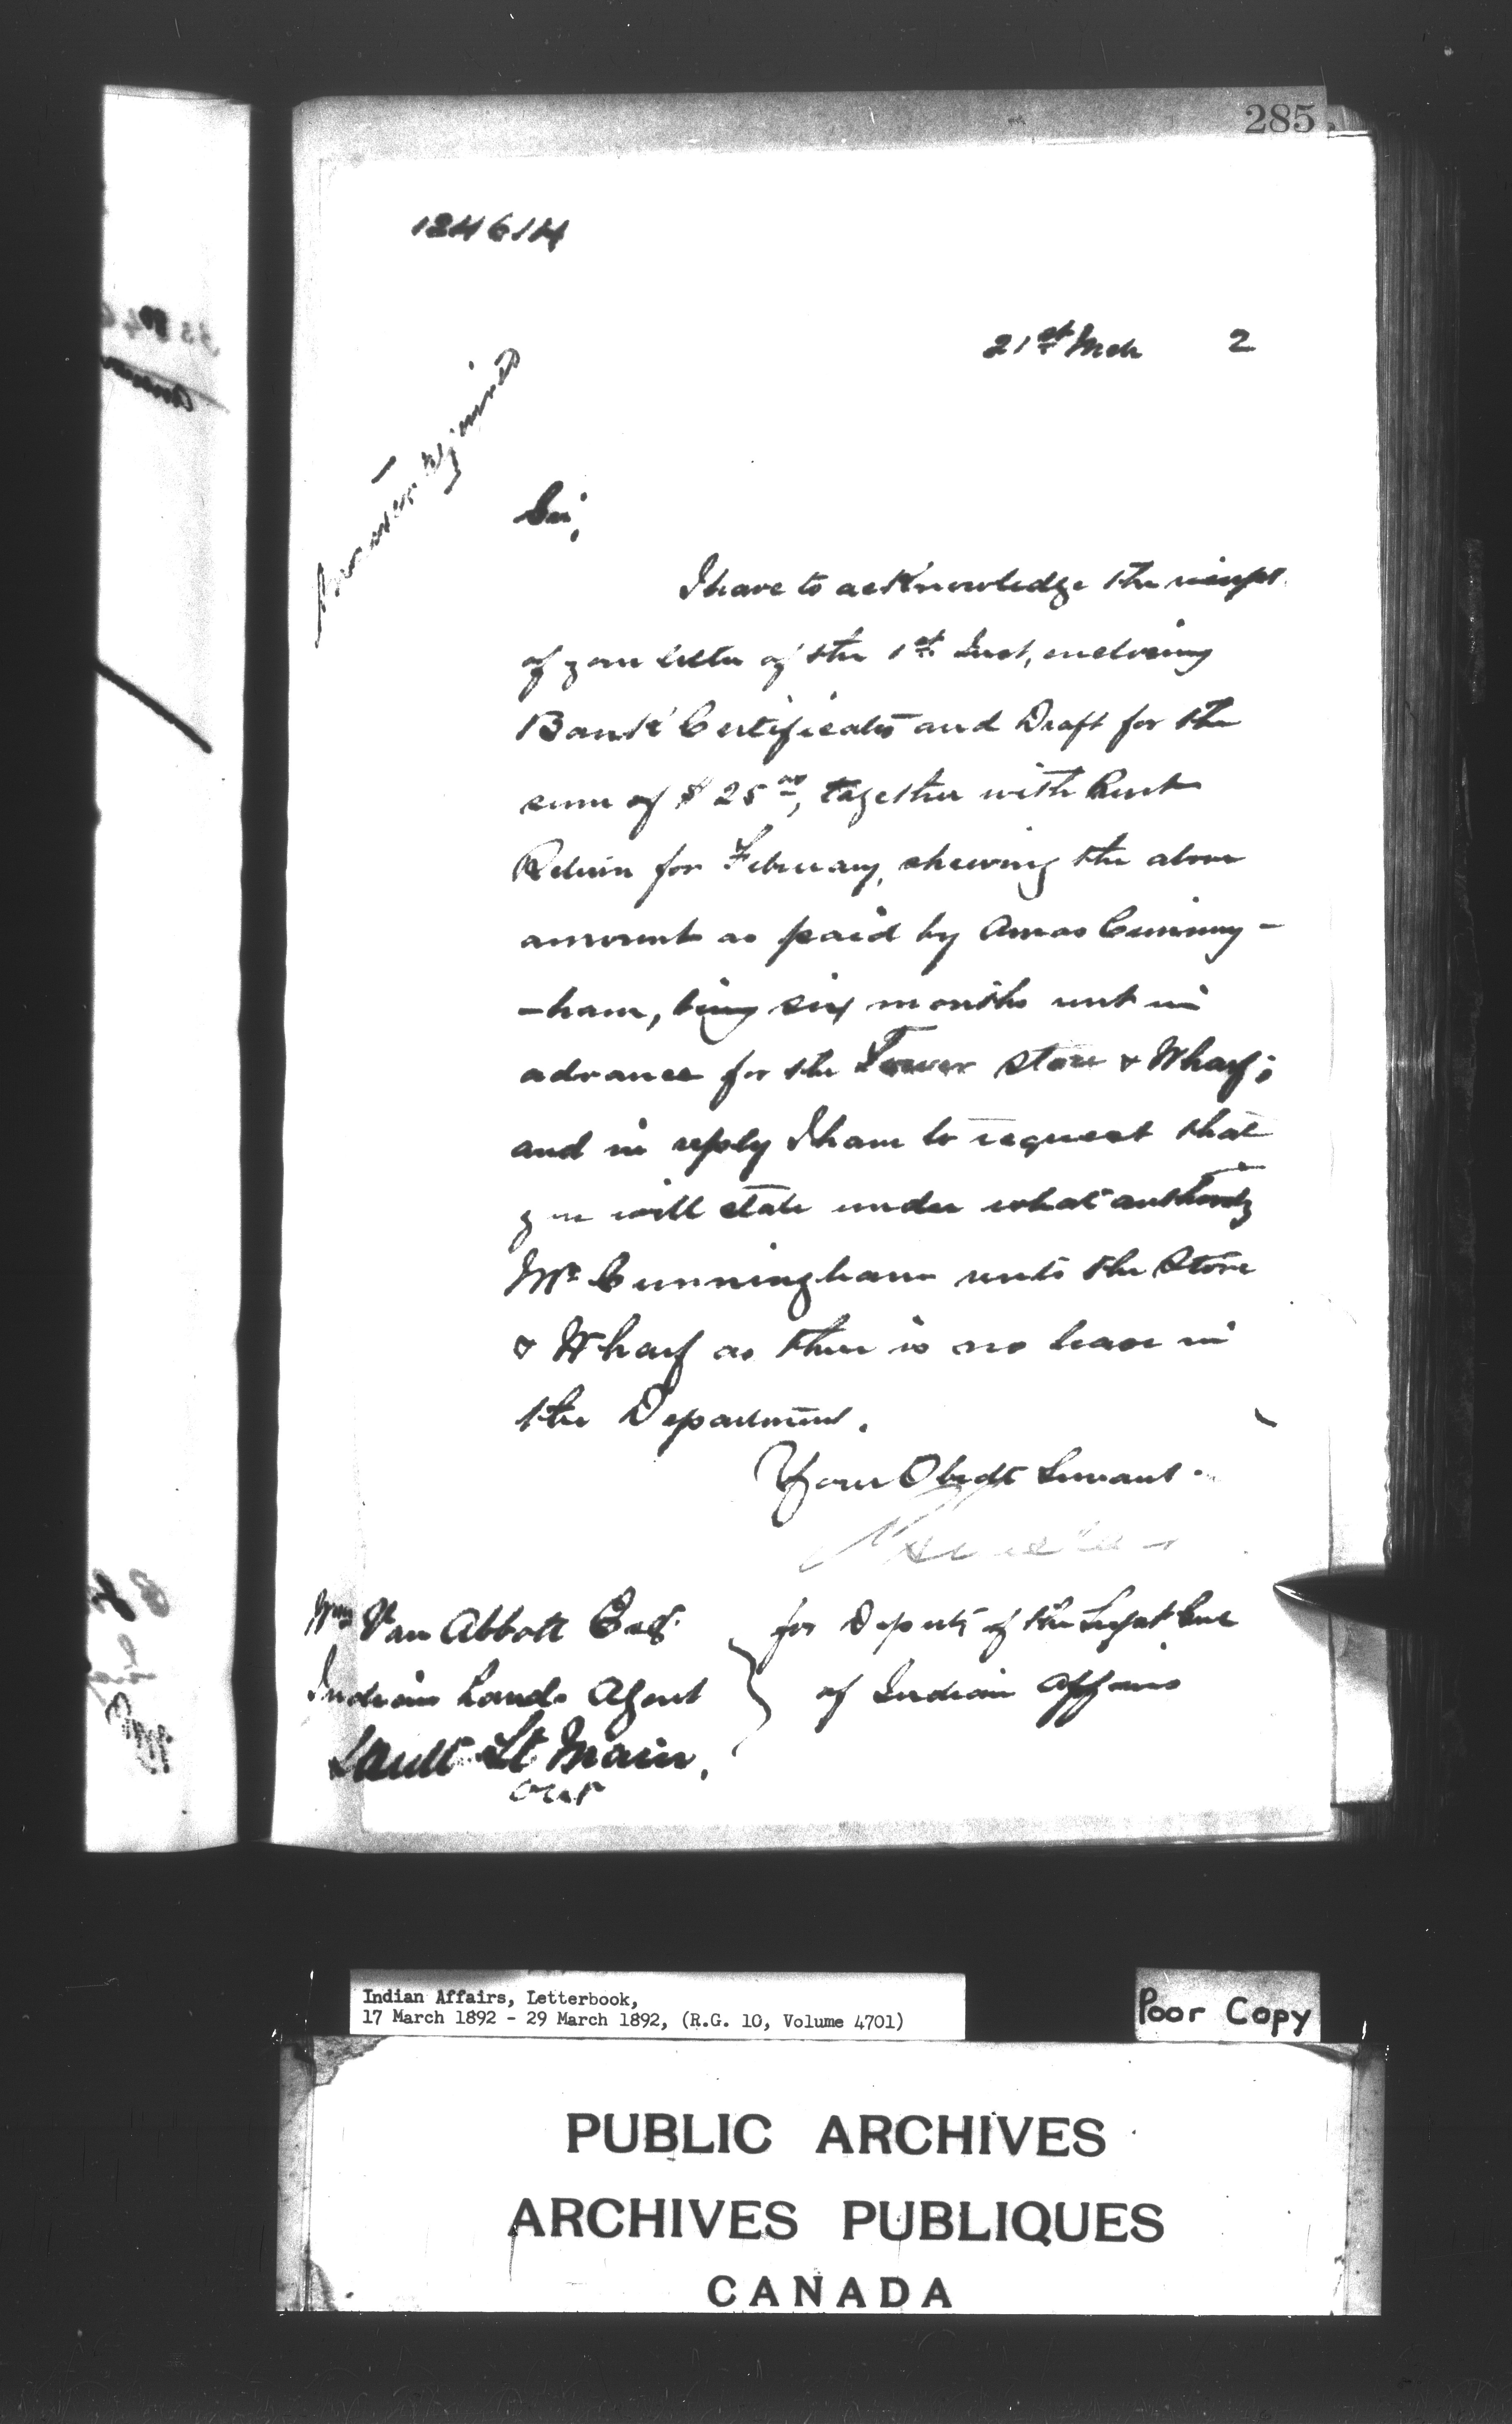 285
124614
21st Mch 2
Answer Required
Sir,
I have to acknowledge the receipt
of your letter of the 1st Inst, enclosing
Bank Certificate and Draft for the
sum of $25 00, together with Rent
Return for February, shewing the above
amount as paid by Amos Cunning-
-ham, being six months rent in
advance for the Tower Store & Wharf;
and in reply I have to request that
you will state under what authority
Mr Cunningham rents the Store
& Wharf as there is no lease in
the Department.
Your Obedt Servant
for Deputy of the Supt Genl
of Indian Affairs
Wm Van Abbott Esq.
Indian Lands Agent
Sault St Marie.
Ont
Indian Affairs, Letterbook,
17 March 1892 - 29 March 1892, (R.G. 10, Volume 4701)
Poor Copy
PUBLIC ARCHIVES
ARCHIVES PUBLIQUES
CANADA